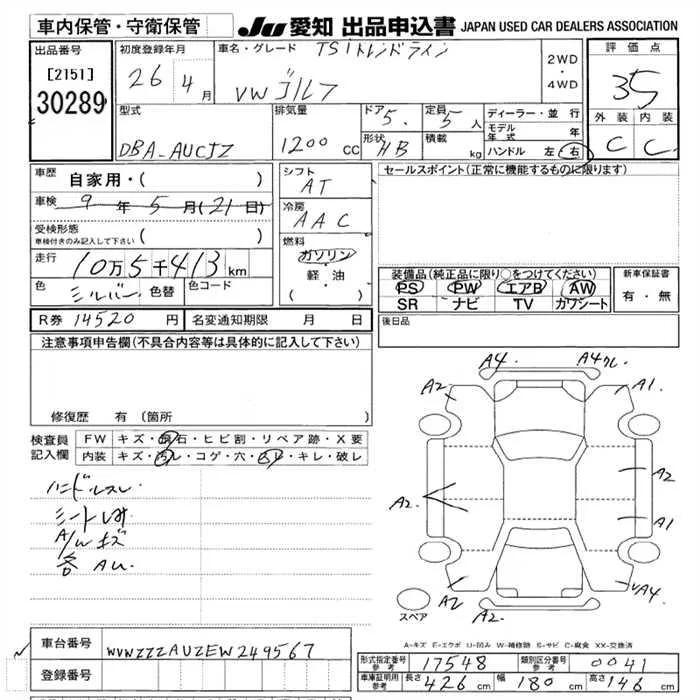 車内保管・守衛保管
JU 愛知 出品申込書 JAPAN USED CAR DEALERS ASSOCIATION
出品番号
[2151]
30289
初度登録年月
26 年 4月
車名・グレード TSIトレンドライン
VWゴルフ
2WD
・
4WD
評価点
3.5
外装 内装
C C
型式
DBA-AUCJZ
排気量
1200 cc
ドア 5.
定員 5 人
形状 HB
積載 kg
ディーラー・並行
モデル年式 年
ハンドル 左 右
車歴 自家用・( )
車検 9 年 5 月(21日)
受検形態
車検付きのみ記入して下さい ( )
走行 10万5千413km
色 シルバー 色替 色コード
シフト
AT
冷房
AAC
燃料
ガソリン
軽・油
( )
セールスポイント(正常に機能するものに限ります)
装備品(純正品に限り○をつけてください)
PS PW エアB AW
SR ナビ TV カワシート
新車保証書
有・無
R券 14520 円 名変通知期限 月 日
後日品
注意事項申告欄(不具合内容等は具体的に記入して下さい)
修復歴 有(箇所 )
検査員記入欄
FW キズ・飛石・ヒビ割・リペア跡・X要
内装 キズ・汚レ・コゲ・穴・スレ・キレ・破レ
ハンドルスレ
シート
A/Wキズ
各AU
A4 A4
A2 A1
A2 A2
A1
A2 A2 A4
スペア
A-キズ E-エクボ U-凹み W-補修跡 S-サビ C-腐食 XX-交換済
車台番号 WVWZZZAUZEW249567
登録番号
形式指定番号 参考 17548 類別区分番号 参考 0041
車庫証明用 参考 長さ 426 cm 幅 180 cm 高さ 146 cm